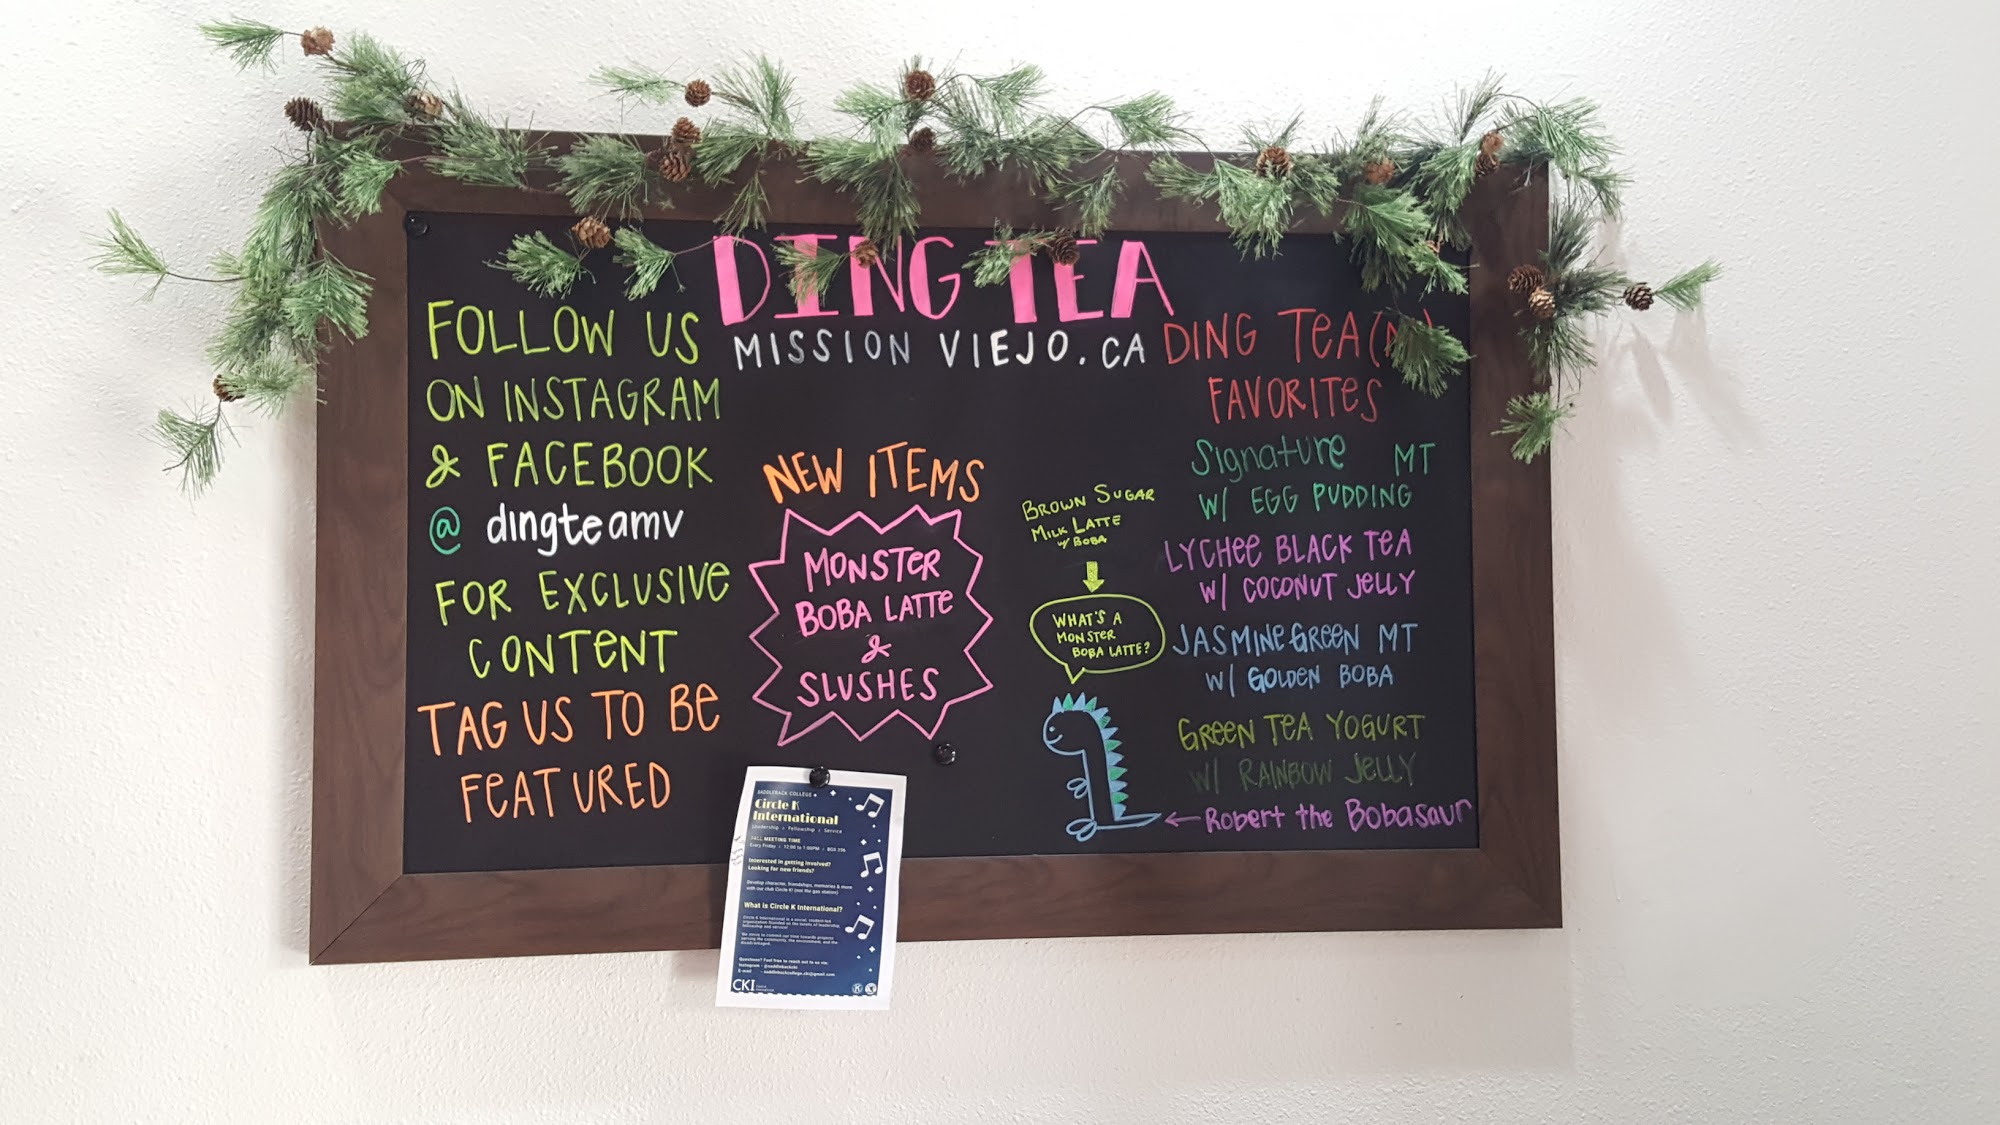 DING TEA
MISSION VIEJO, CA
FOLLOW US
ON INSTAGRAM
& FACEBOOK
@ dingteamv
FOR EXCLUSIVE
CONTENT
TAG US TO BE
FEATURED
NEW ITEMS
MONSTER
BOBA LATTE
&
SLUSHES
BROWN SUGAR
MILK LATTE
w/ BOBA
WHAT'S A
MONSTER
BOBA LATTE?
DING TEA
FAVORITES
Signature MT
W/ EGG PUDDING
LYCHEE BLACK TEA
W/ COCONUT JELLY
JASMINE GREEN MT
W/ GOLDEN BOBA
GREEN TEA YOGURT
W/ RAINBOW JELLY
← ROBERT the BOBASAUR
SADDLEBACK COLLEGE
Circle K
International
Leadership Fellowship Service
FALL MEETING TIME
Every Friday 12:00 to 1:00PM
Interested in getting involved?
Looking for new friends?
Develop character, friendships, memories & more
with our club Circle K! (not the gas station)
What is Circle K International?
Questions? Feel free to reach out to us via:
Instagram - @saddlebackcki
E-mail - saddlebackcollege.cki@gmail.com
CKI